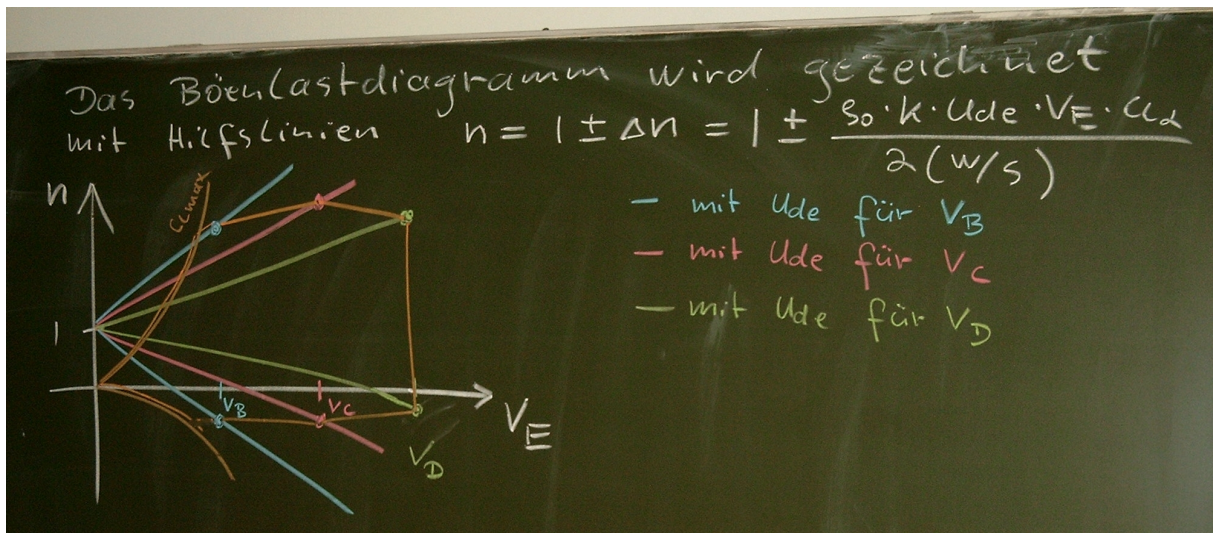 Das Böenlastdiagramm wird gezeichnet
mit Hilfslinien n = 1 ± Δn = 1 ± So · K · Ude · VE · CLα / 2(W/S)
n
CLmax
— mit Ude für VB
— mit Ude für VC
— mit Ude für VD
1
VB
VC
VE
VD